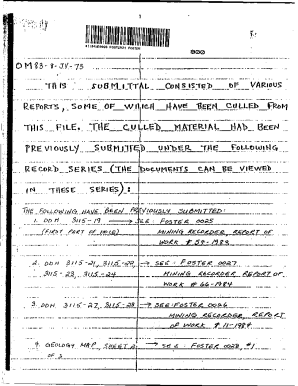 1
020
OM83-8-JV-73
THIS SUBMITTAL CONSISTED OF VARIOUS
REPORTS, SOME OF WHICH HAVE BEEN CULLED FROM
THIS FILE. THE CULLED MATERIAL HAD BEEN
PREVIOUSLY SUBMITTED UNDER THE FOLLOWING
RECORD SERIES (THE DOCUMENTS CAN BE VIEWED
IN THESE SERIES):
THE FOLLOWING HAVE BEEN PREVIOUSLY SUBMITTED:
1. DDH 3115-19 → SEE: FOSTER 0025
(FIRST PART OF HOLE) MINING RECORDER, REPORT OF
WORK # 59-1983
2. DDH 3115-21, 3115-22, → SEE: FOSTER 0027
3115-23, 3115-24 MINING RECORDER REPORT OF
WORK # 66-1984
3. DDH 3115-27, 3115-28 → SEE: FOSTER 0026
MINING RECORDER, REPORT
OF WORK # 11-1984
4. GEOLOGY MAP, SHEET 2 → SEE: FOSTER 0028, #1
OF 2